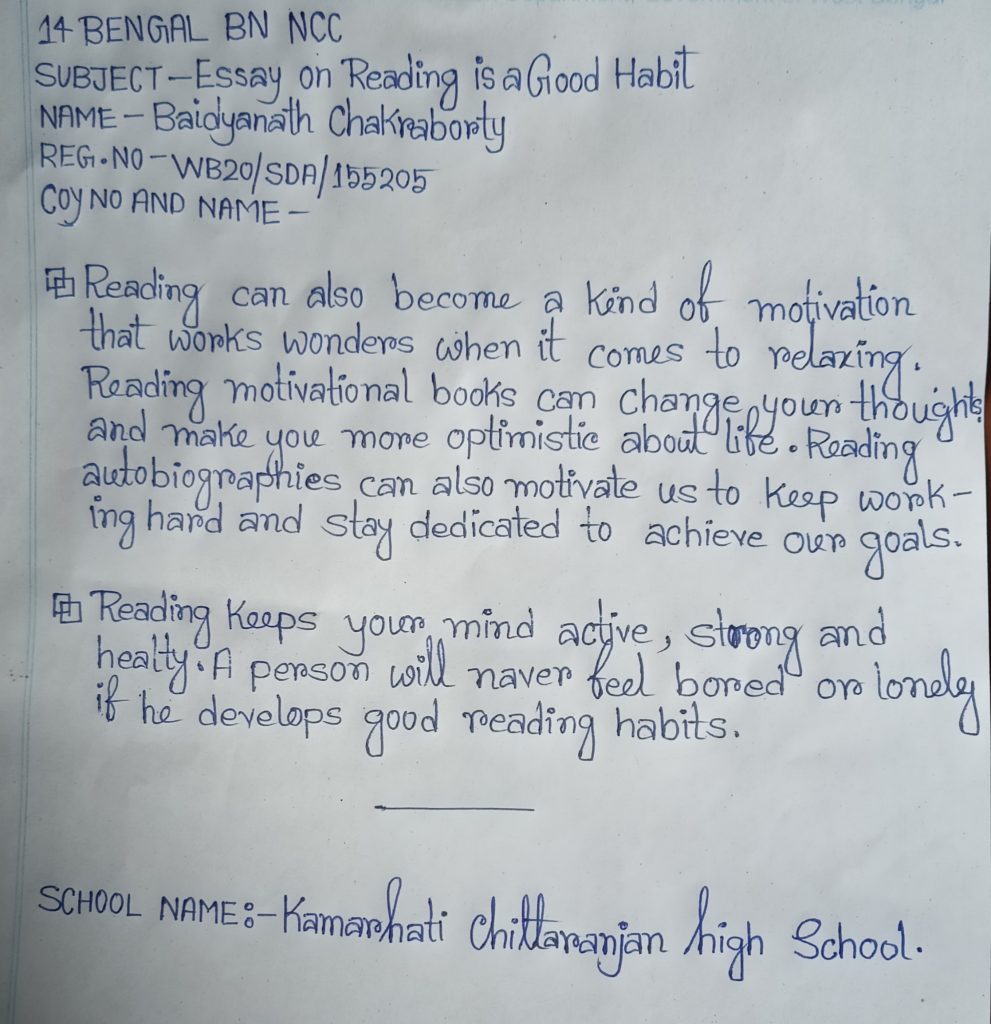 14 BENGAL BN NCC
SUBJECT - Essay on Reading is a Good Habit
NAME - Baidyanath Chakraborty
REG. NO - WB20/SDA/155205
COY NO AND NAME -
Reading can also become a kind of motivation
that works wonders when it comes to relaxing.
Reading motivational books can change your thoughts
and make you more optimistic about life. Reading
autobiographies can also motivate us to keep work-
ing hard and stay dedicated to achieve our goals.
Reading keeps your mind active, strong and
healty. A person will naver feel bored or lonely
if he develops good reading habits.
SCHOOL NAME:- Kamarhati Chittaranjan high School.